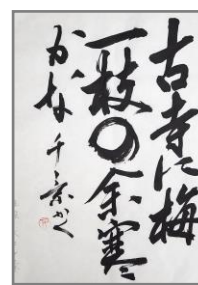 古寺に梅
一枝の余寒
かな